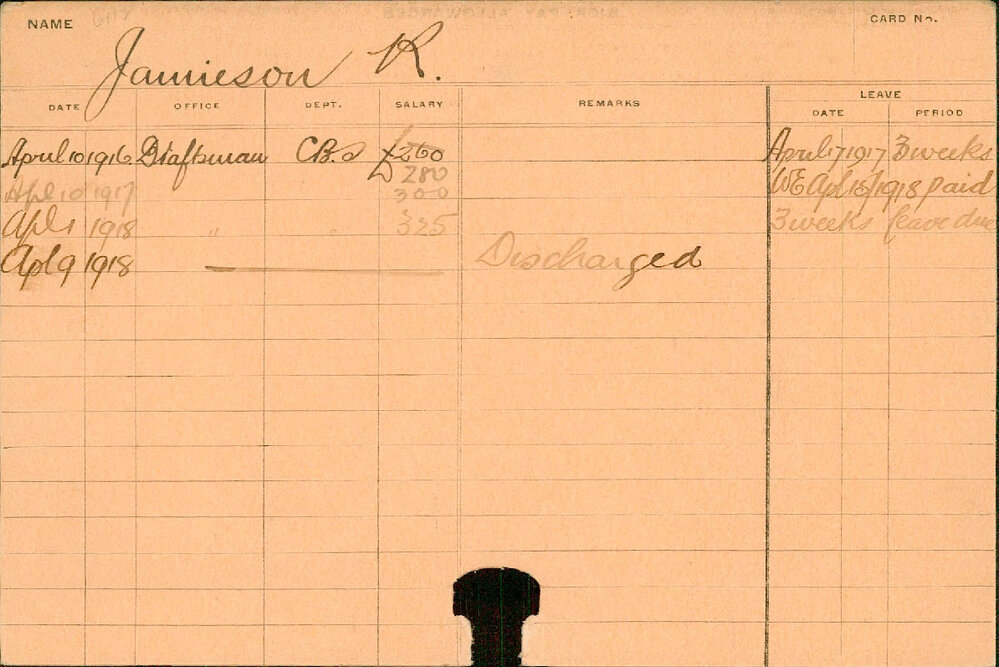 NAME CARD No.
Jamieson R.
DATE OFFICE DEPT. SALARY REMARKS LEAVE
DATE PERIOD
April 10 1916 Draftsman C.B.s £260 April 17 1917 3 weeks
280
Apl 10 1917 300 WE Apl 18/1918 paid
Apl 1 1918 " " 325 3 weeks leave due
Apl 9 1918 Discharged